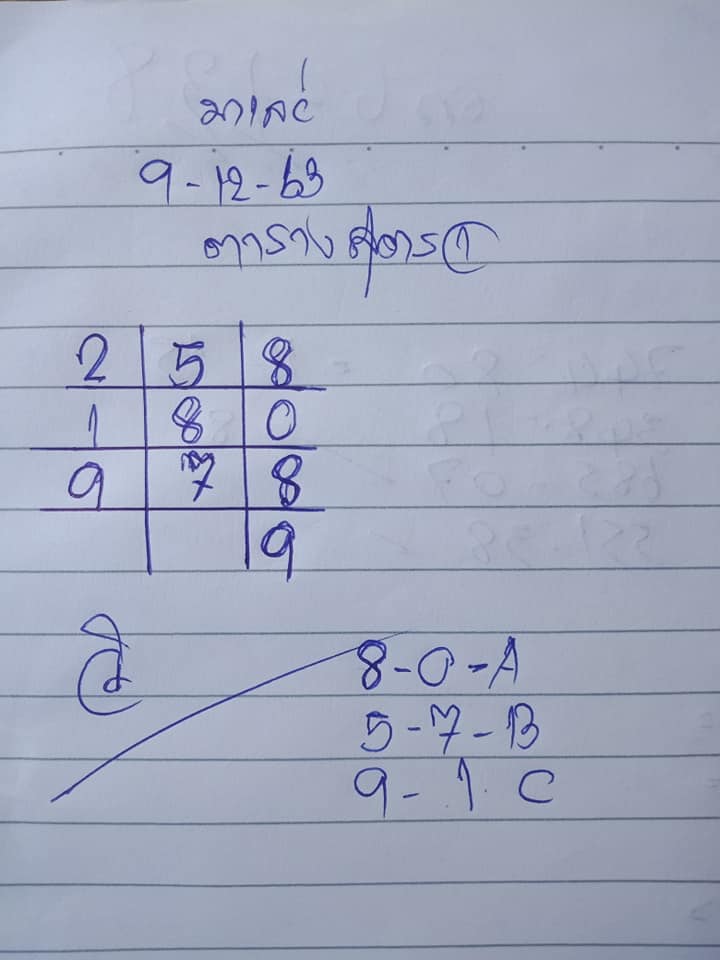 มาเลย์
9-12-63
ตารางสูตร 1
2 5 8
1 8 0
9 7 8
9
8-0-A
5-7-B
9-1 C